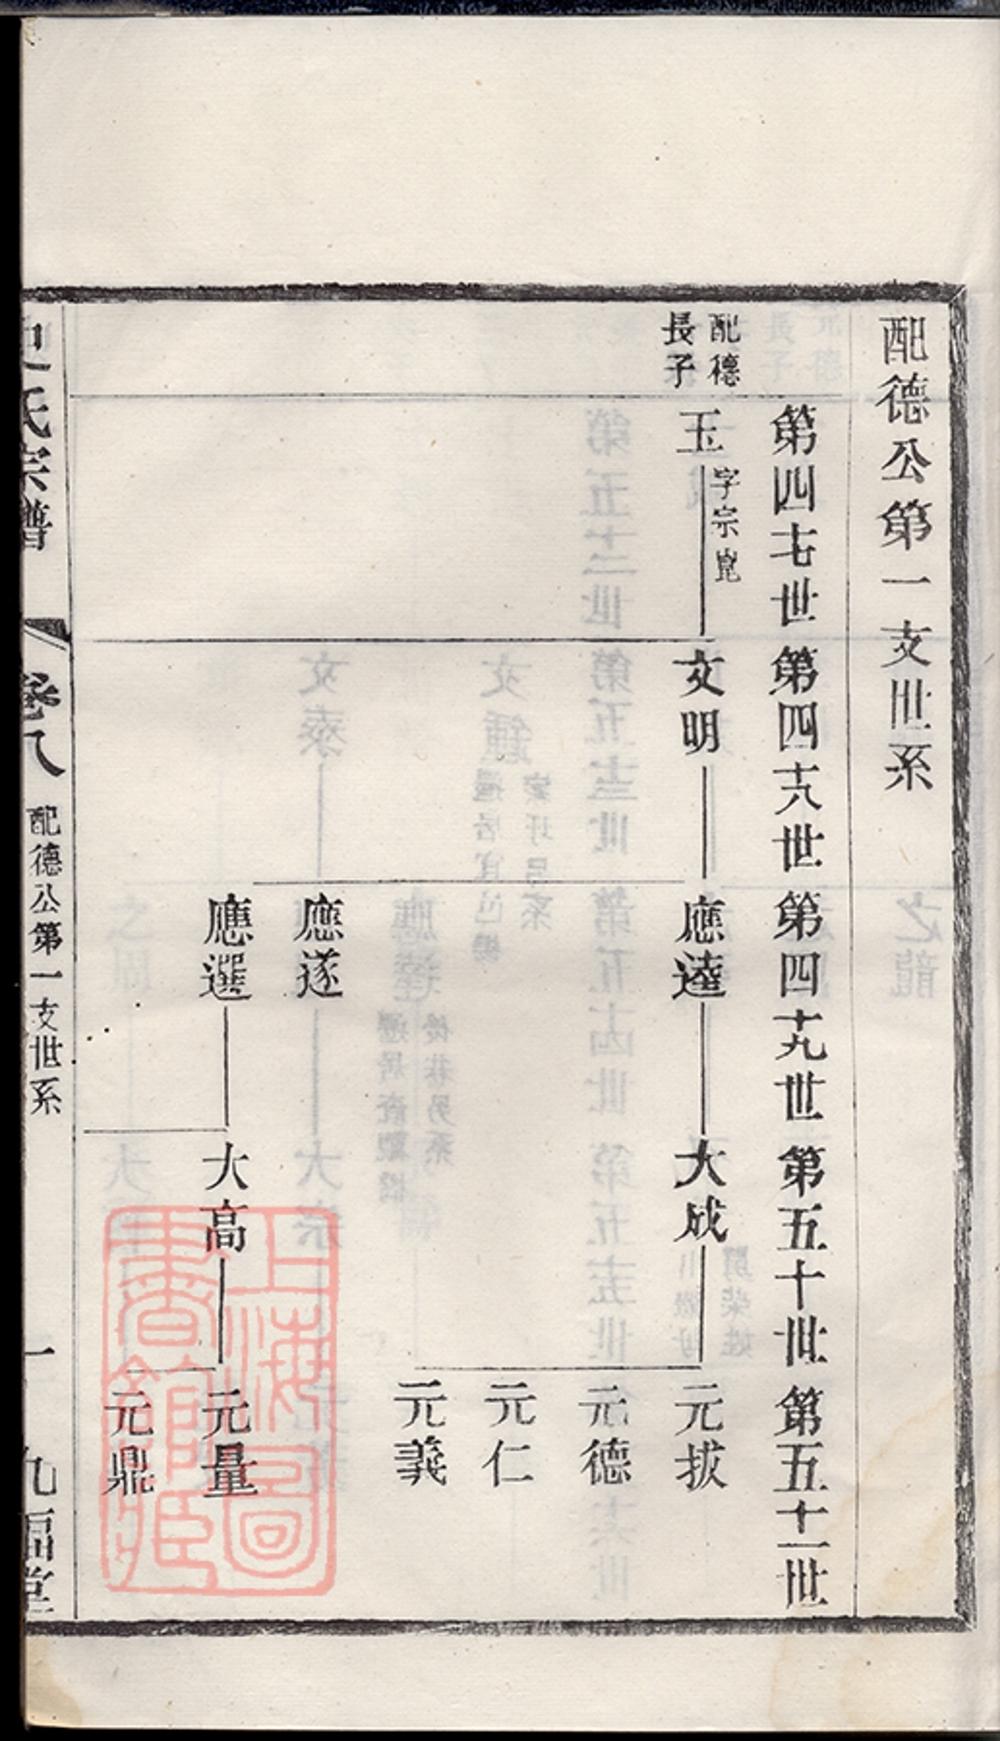 配德公第一支世系
第四七世 第四十八世 第四十九世 第五十世 第五十一世
配德
長子
玉 字宗崑
文明
應逵
大成
元拔
元德
元仁
元義
應遂
應選
大高
元量
元鼎
史氏宗譜
卷八
配德公第一支世系
一
九福堂
上海圖
書館藏